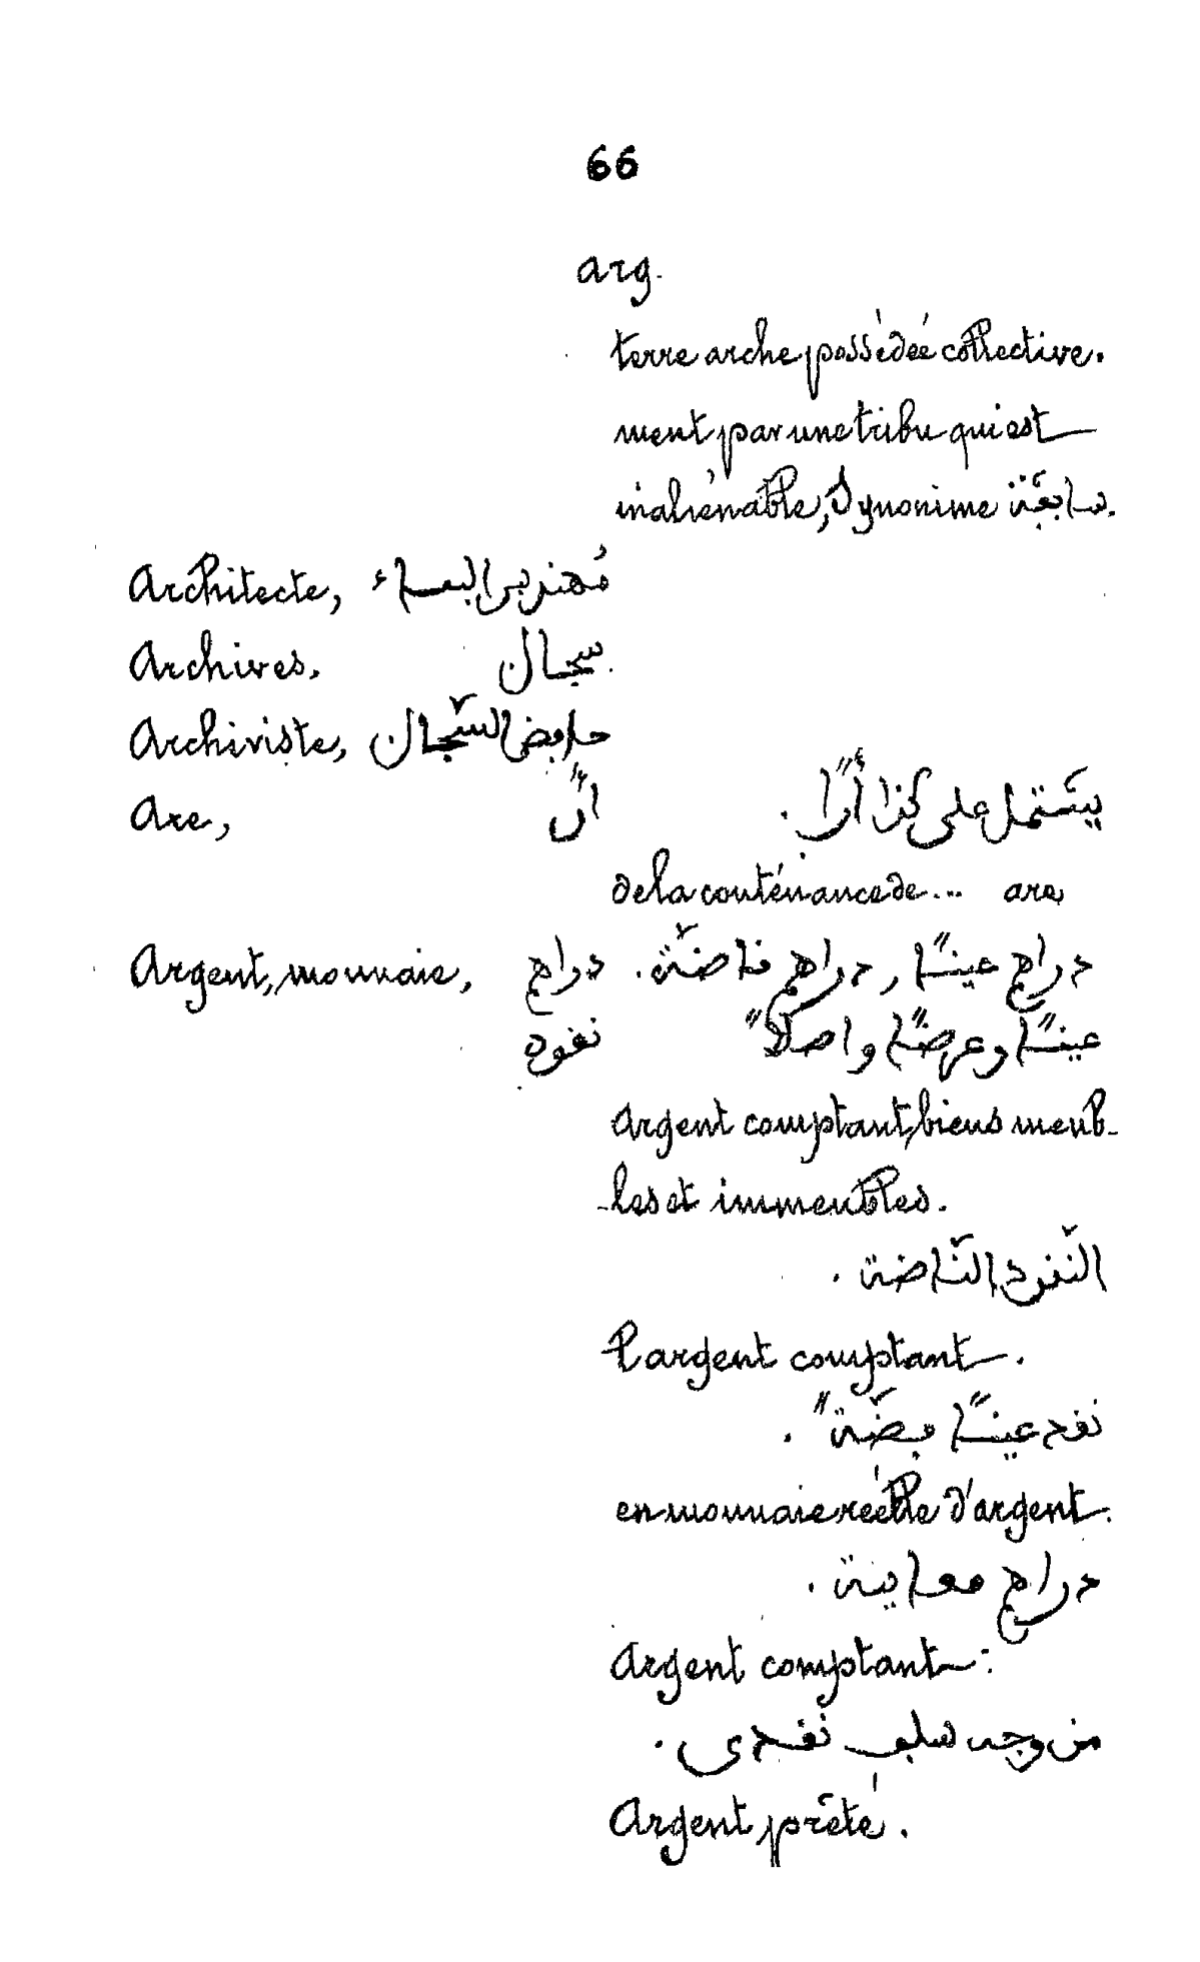 66
arg.
terre arche possédée collective.
ment par une tribu qui est
inaliénable, Synonime سابقة.
Architecte,
Archives. سجال
Archiviste, حافض السّجال
Are, يشتمل على كذا أرًا.
de la conténance de... are
Argent, monnaie, دراهم دراهم عينًا, دراهم ناضّة.
نفود عينًا وعرضًا واصلاً
argent comptant, biens meub-
-les et immeubles.
النّفود النّاضة.
l'argent comptant.
نفد عينًا فضّةً.
en monnaie réelle d'argent.
دراهم معاينة.
Argent comptant:
من وجه سلف نفدى.
Argent prêté.